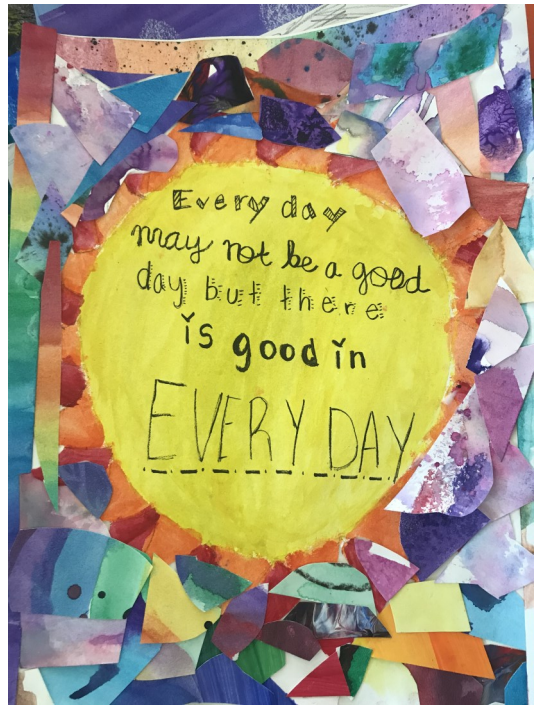 Every day
may not be a good
day but there
is good in
EVERY DAY